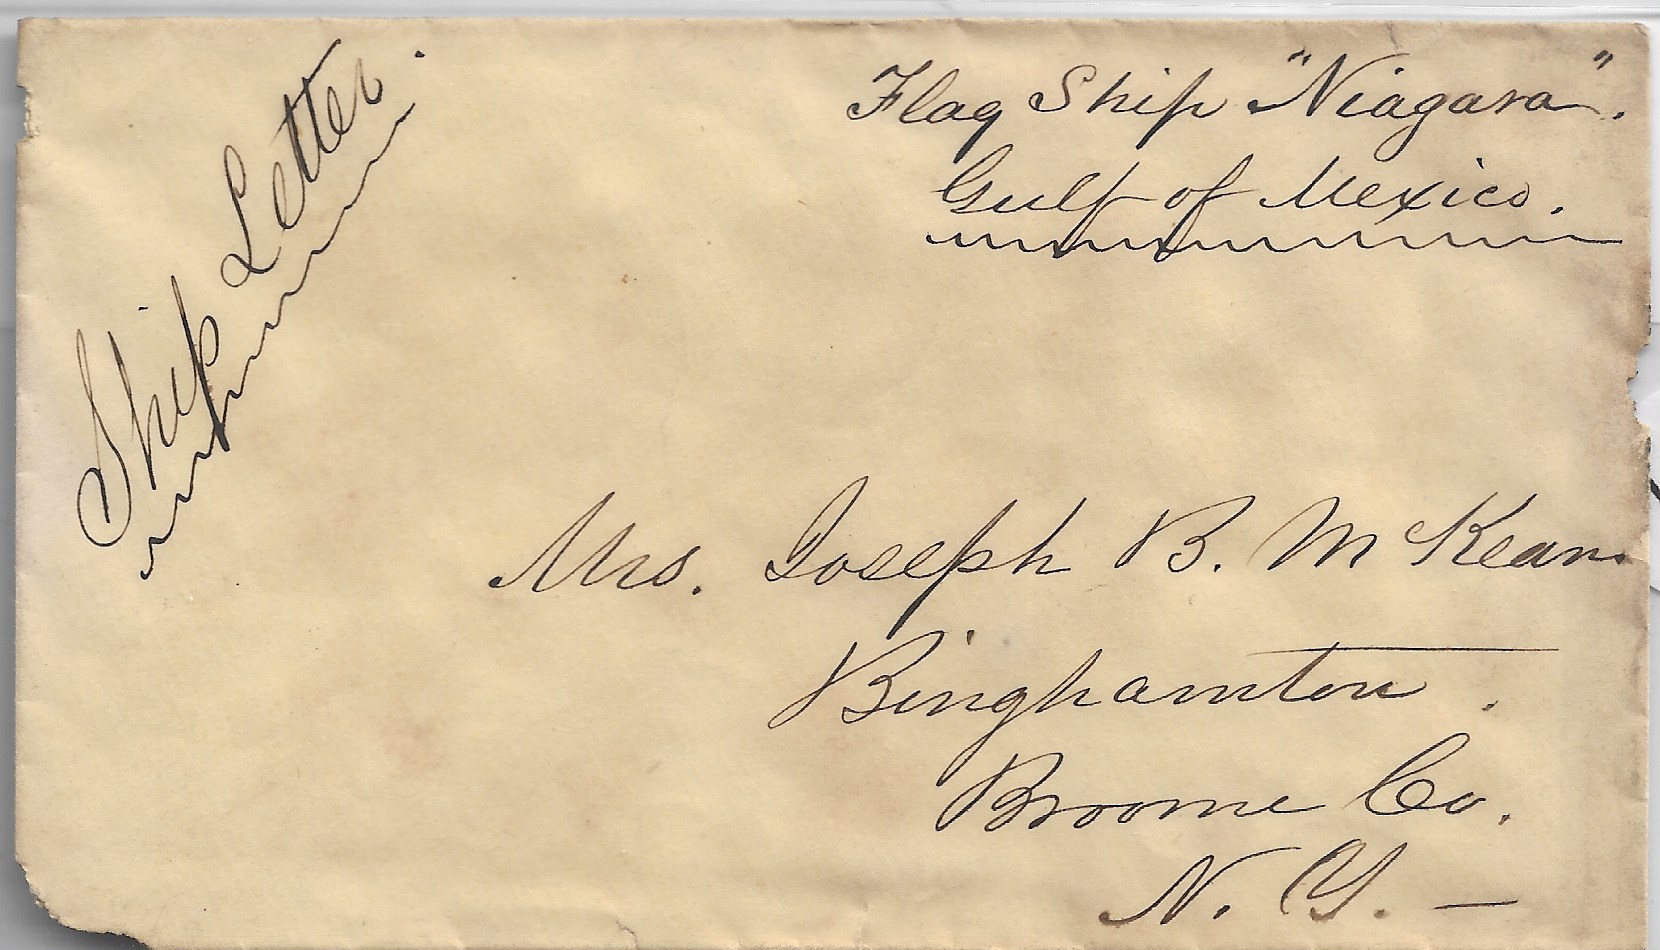 Ship Letter.
Flag Ship "Niagara".
Gulf of Mexico.
Mrs. Joseph B. McKean.
Binghamton.
Broome Co.
N. Y. —